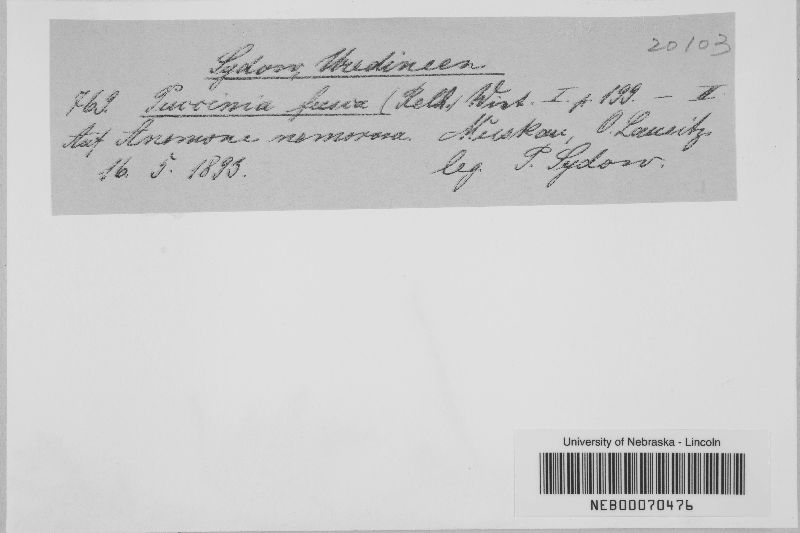 20103
Sydow, Uredineen
769. Puccinia fusca (Relh.) Wint. I. p. 199. — III.
Auf Anemone nemorosa. Muskau, O. Lausitz.
16. 5. 1893. leg. P. Sydow.
University of Nebraska - Lincoln
NEB00070476